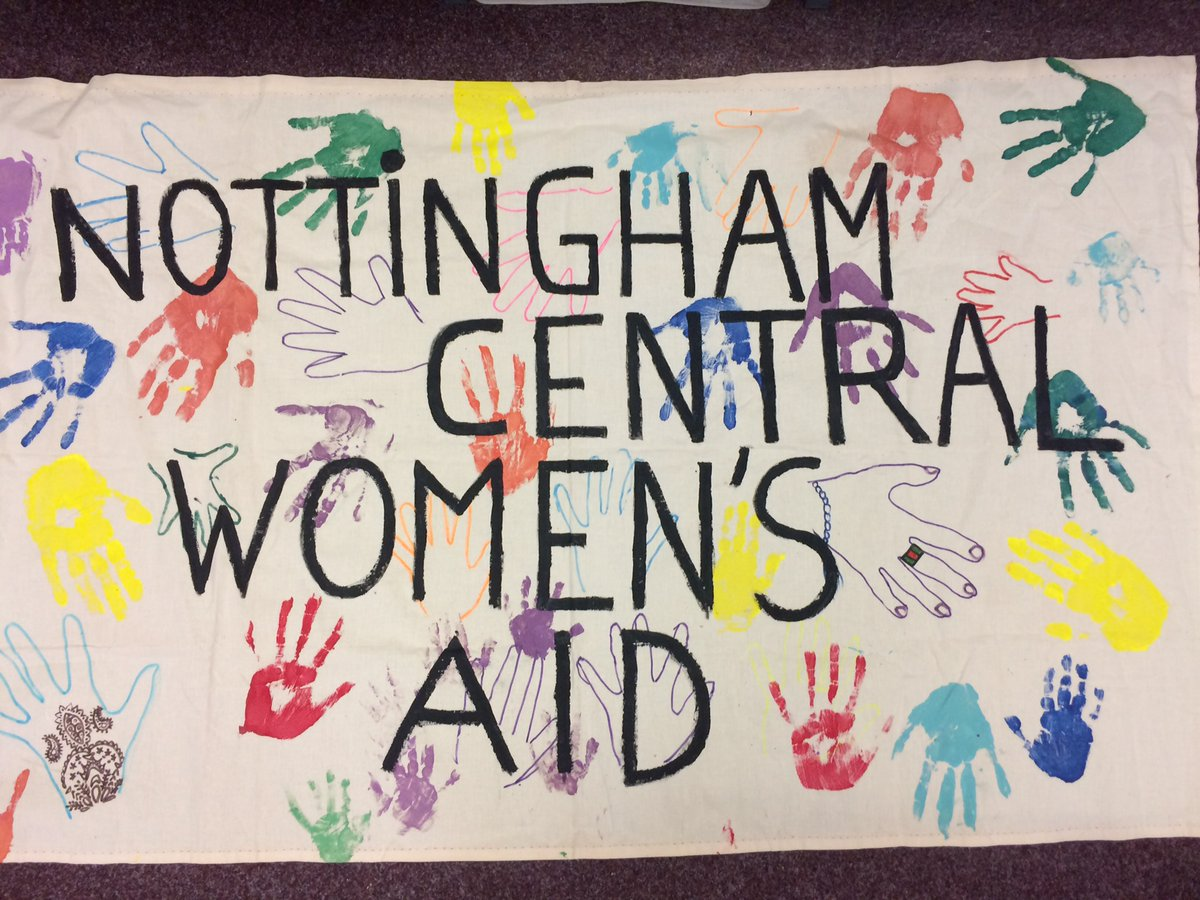 NOTTiNGHAM
CENTRAL
WOMEN'S
AID